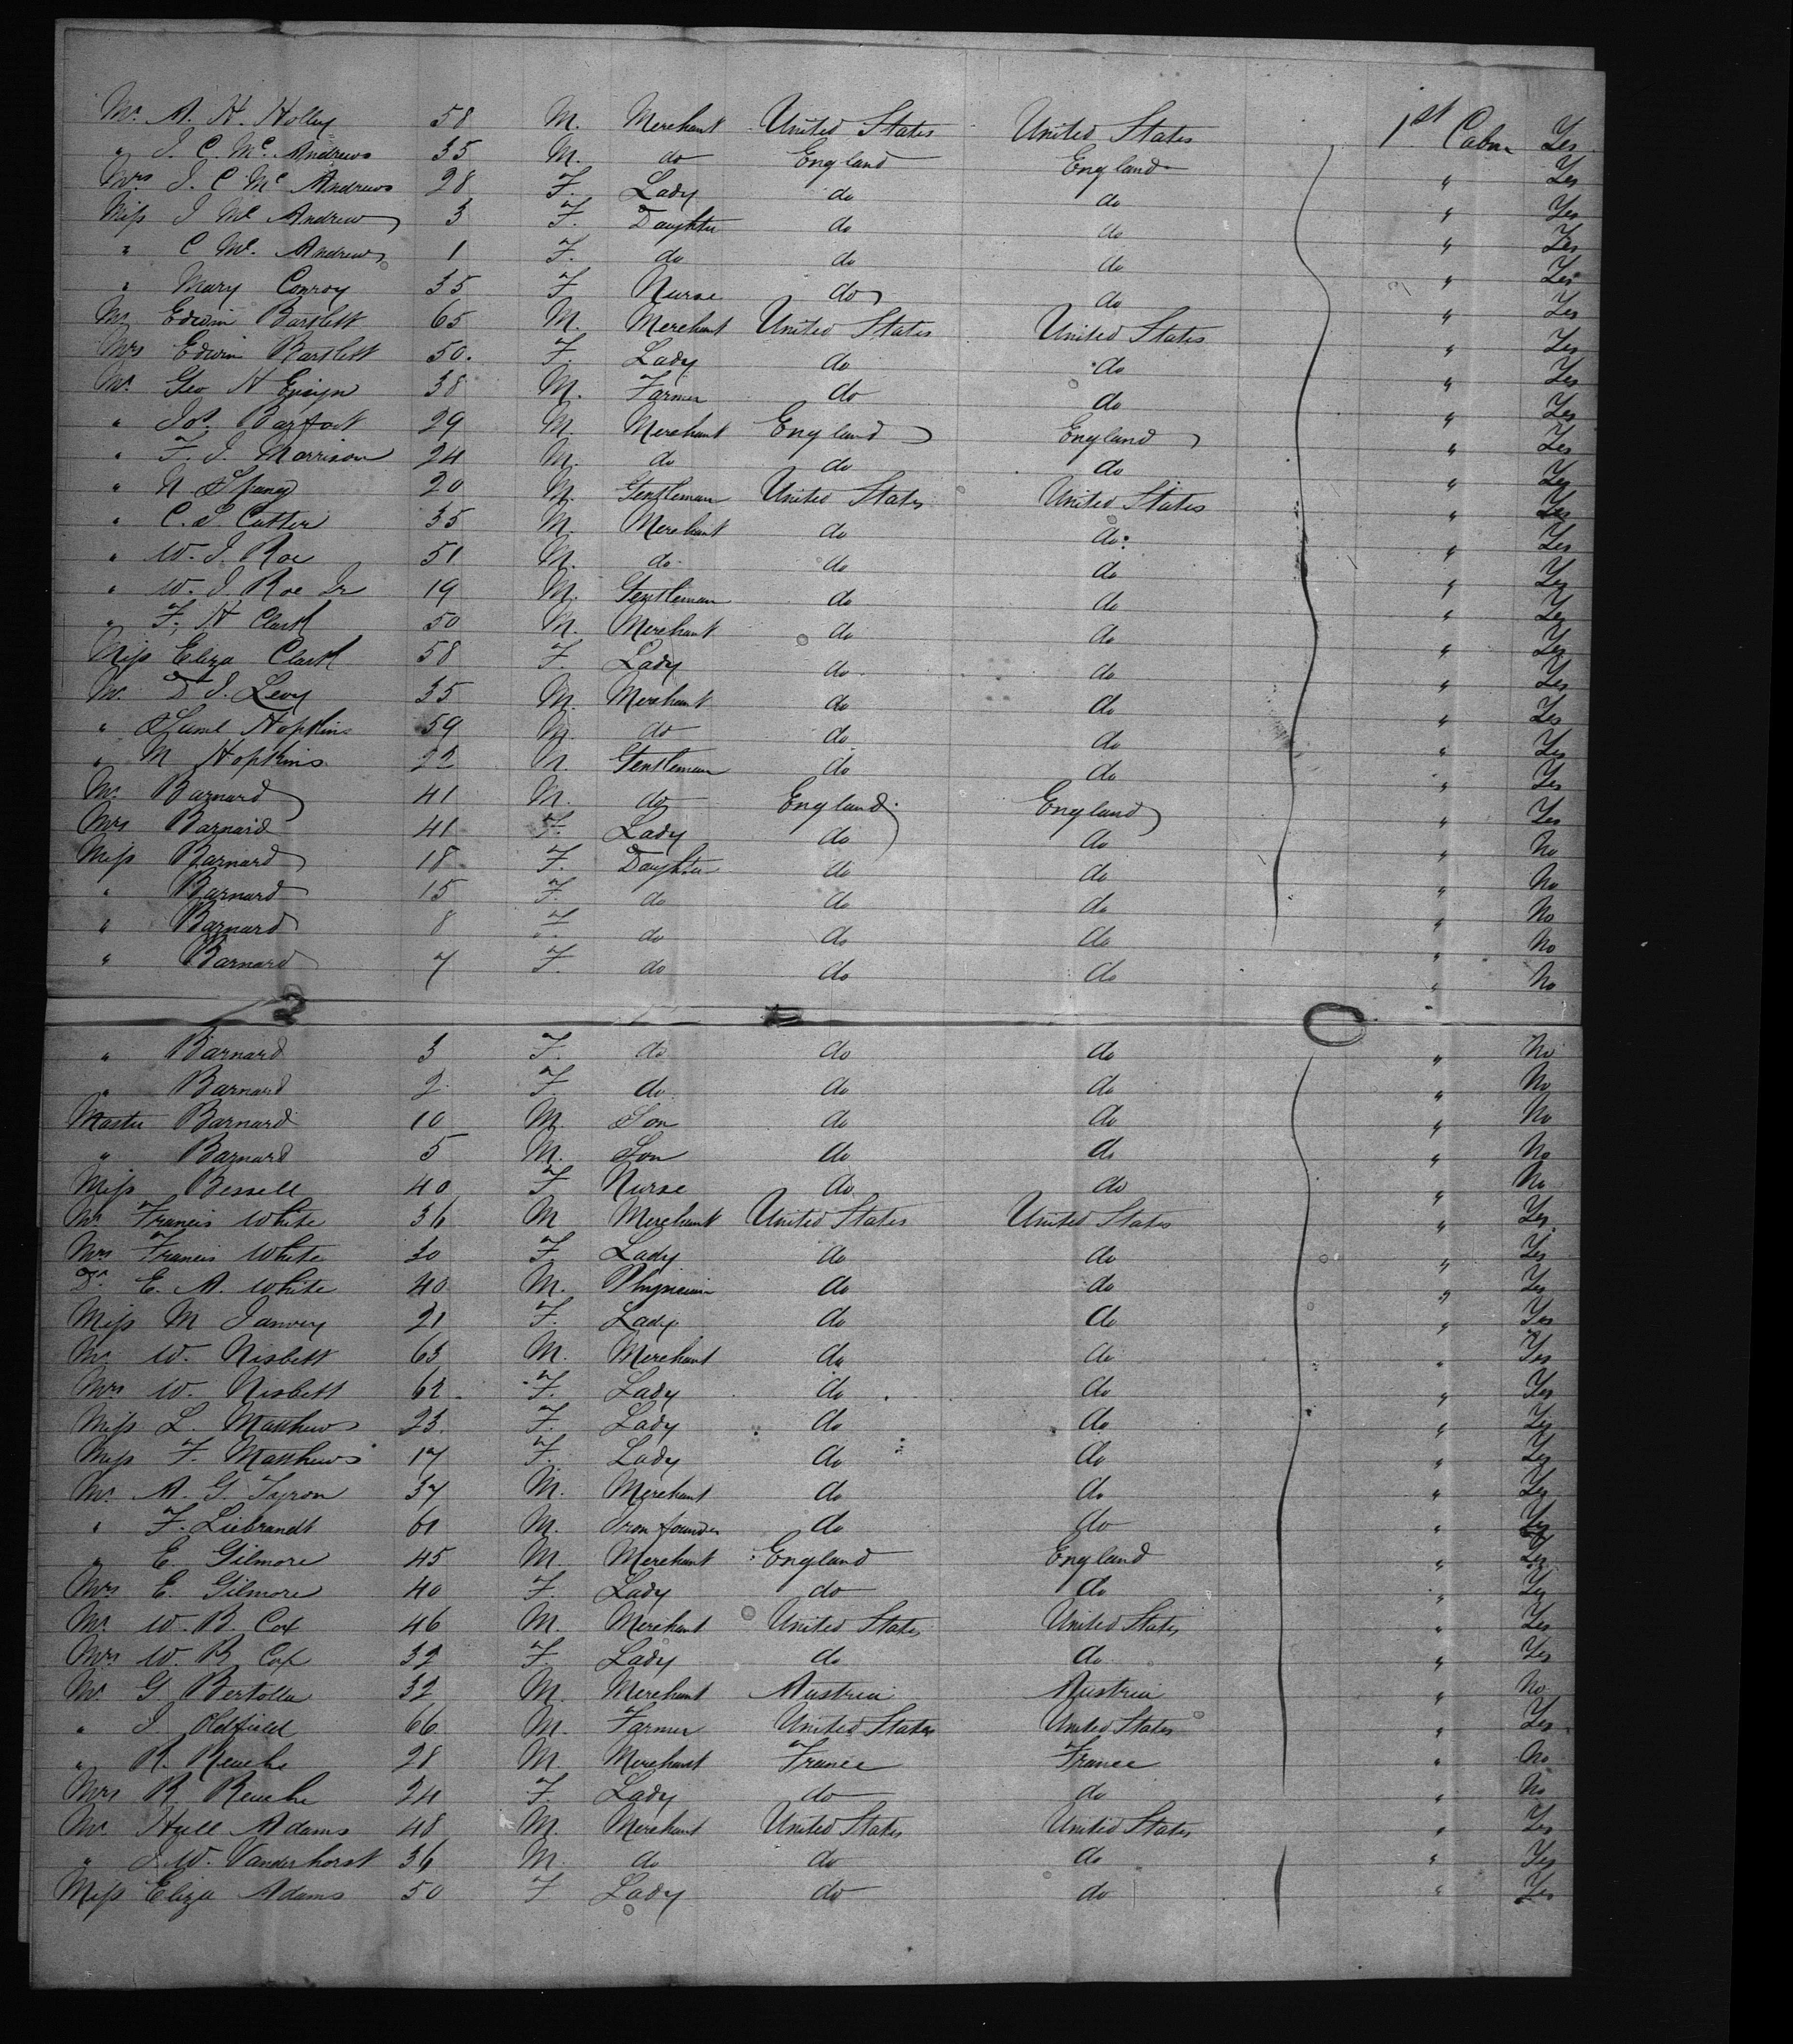 Mr A. H. Holley 58 M. Merchant United States United States 1st Cabin Yes
" J. C. Mc Andrews 35 M. do England England " Yes
Mrs J. C Mc Andrews 28 F. Lady do do " Yes
Miss J Mc Andrews 3 F. Daughter do do " Yes
" C Mc. Andrews 1 F. do do do " Yes
" Mary Conroy 35 F Nurse do do " Yes
Mr Edwin Bartlett 65 M. Merchant United States United States " Yes
Mrs Edwin Bartlett 50. F. Lady do do " Yes
Mr Geo H 38 M. Farmer do do " Yes
" Jos. Barfoot 29 M. Merchant England England " Yes
" F. J. Morrison 24 M. do do do " Yes
" N 20 M. Gentleman United States United States " Yes
" C. S Cutter 35 M. Merchant do do " Yes
" W. J. Roe 51 M. do do do " Yes
" W. J Roe Jr 19 M. Gentleman do do " Yes
" F. H Clark 50 M. Merchant do do " Yes
Miss Eliza Clark 58 F. Lady do do " Yes
Mr. D J. Levy 35 M. Merchant do do " Yes
" Saml Hopkins 59 M do do do " Yes
" M Hopkins 22 M. Gentleman do do " Yes
Mr. Barnard 41 M. do England England " Yes
Mrs Barnard 41 F. Lady do do " No
Miss Barnard 18 F. Daughter do do " No
" Barnard 15 F. do do do " No
" Barnard 8 F. do do do " No
" Barnard 7 F. do do do " No
" Barnard 3 F. do do do " No
" Barnard 2 F do do do " No
Master Barnard 10 M. Son do do " No
" Barnard 5 M. Son do do " No
Miss Bessell 40 F Nurse do do " No
Mr Francis White 36 M Merchant United States United States " Yes
Mrs Francis White 30 F Lady do do " Yes
Dr E. A. White 40 M. Physician do do " Yes
Miss M Janvery 21 F. Lady do do " Yes
Mr W. Nisbett 63 M. Merchant do do " Yes
Mrs W. Nisbett 62 F. Lady do do " Yes
Miss L. Matthews 23. F. Lady do do " Yes
Miss F. Matthews 17 F. Lady do do " Yes
Mr. A. G. Tyron 37 M. Merchant do do " Yes
" F. Liebrandt 61 M. Iron founder do do " Yes
" E. Gilmore 45 M. Merchant England England " Yes
Mrs E. Gilmore 40 F. Lady do do " Yes
Mr. W. B. Cox 46 M. Merchant United States United States " Yes
Mrs W. B. Cox 32 F. Lady do do " Yes
Mr G Bertolla 32 M. Merchant Austria Austria " No
" J. Oldfield 66 M. Farmer United States United States " Yes
" R. 28 M. Merchant France France " No
Mrs R 24 F. Lady do do " No
Mr. Hull Adams 48 M. Merchant United States United States " Yes
" J. W. Vanderhorst 36 M. do do do " Yes
Miss Eliza Adams 50 F Lady do do " Yes